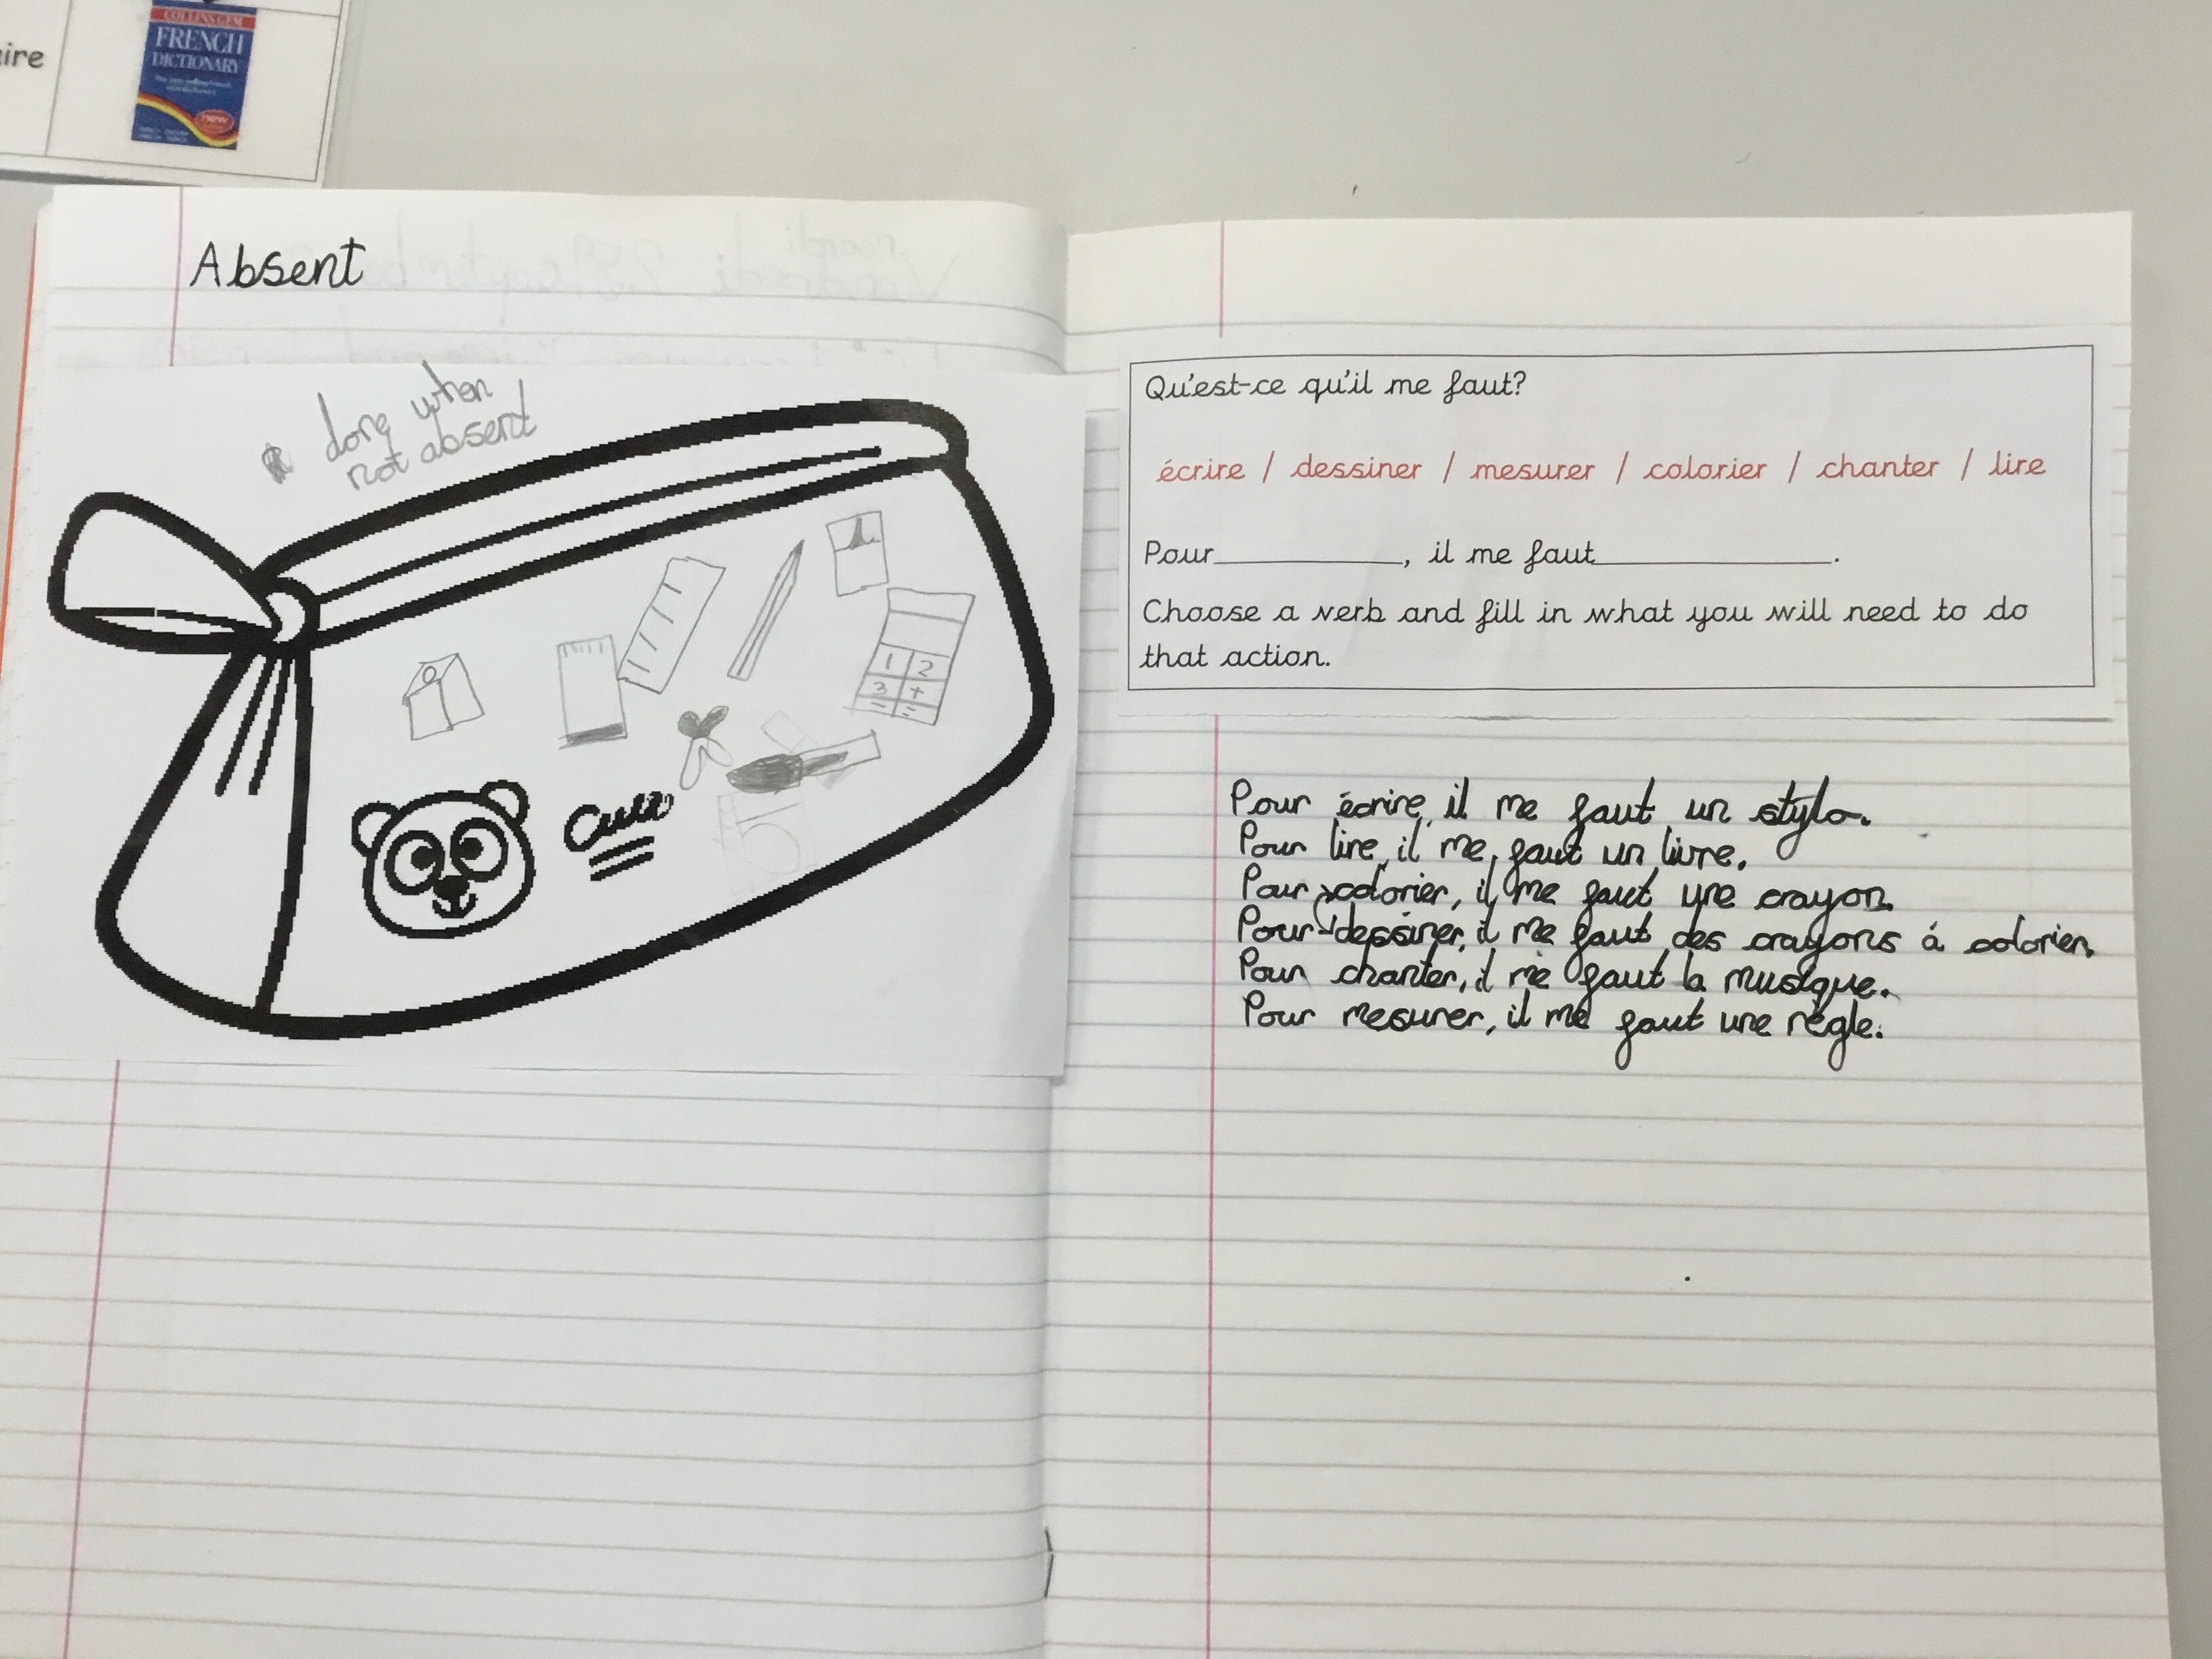 ire
COLLINS GEM
FRENCH
DICTIONARY
new
Absent
done when
not absent
1 2
3 +
Cute
Qu'est-ce qu'il me faut?
écrire / dessiner / mesurer / colorier / chanter / lire
Pour____________, il me faut_______________.
Choose a verb and fill in what you will need to do
that action.
Pour écrire, il me faut un stylo.
Pour lire, il me faut un livre.
Pour colorier, il me faut une crayon.
Pour dessiner, il me faut des crayons á colorier.
Pour chanter, il me faut la musique.
Pour mesurer, il me faut une régle.